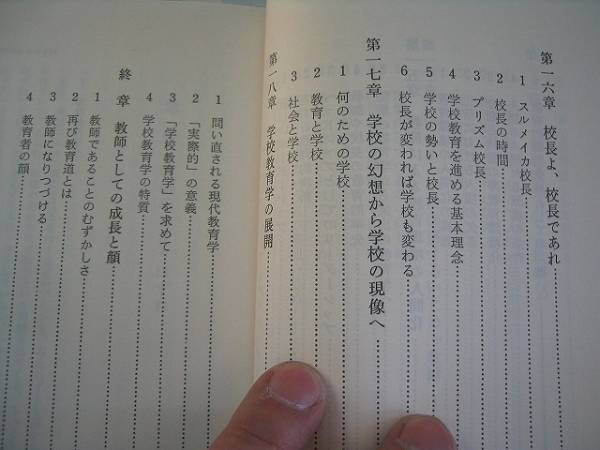 第一六章　校長よ、校長であれ
1　スルメイカ校長
2　校長の時間
3　プリズム校長
4　学校教育を進める基本理念
5　学校の勢いと校長
6　校長が変われば学校も変わる
第一七章　学校の幻想から学校の現像へ
1　何のための学校
2　教育と学校
3　社会と学校
第一八章　学校教育学の展開
1　問い直される現代教育学
2　「実際的」の意義
3　「学校教育学」を求めて
4　学校教育学の特質
終　章　教師としての成長と顔
1　教師であることのむずかしさ
2　再び教育道とは
3　教師になりつづける
4　教育者の顔